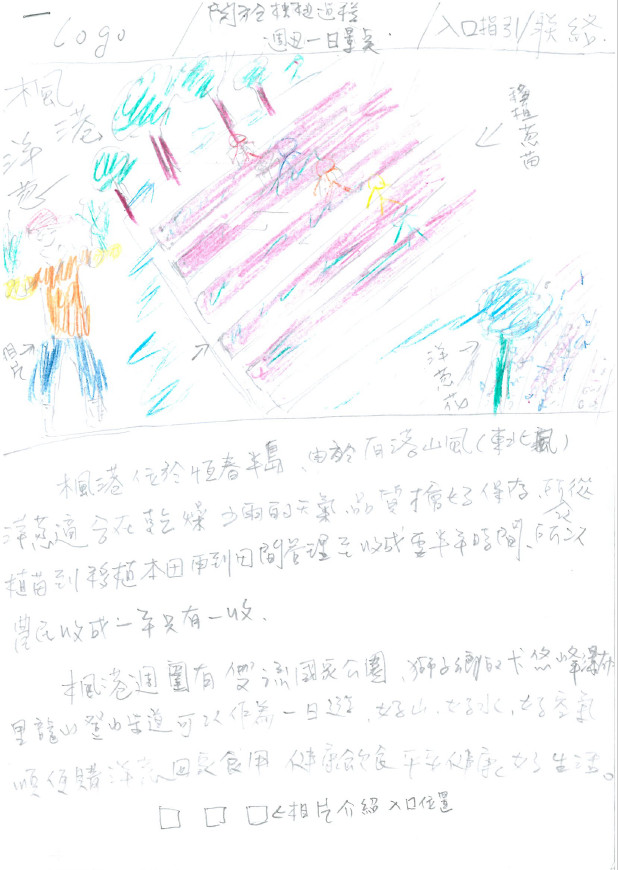 Logo
週邊一日景點
入口指引/聯絡
楓港
洋蔥
移植蔥苗
農民
洋蔥花
楓港位於恒春半島,由於有落山風(東北風)
洋蔥適合在乾燥少雨的天氣,品質擋好保存,從
植苗到移植本田再到田間管理至收成要半年時間,所以
農民收成一年只有一收.
楓港週圍有雙流國家公園,獅子鄉的卡悠峰瀑布
里龍山登山步道可以作為一日遊,好山,好水,好空氣
順便購洋蔥回家食用 健康飲食 平平健康、好生活。
□ □ □←相片介紹入口位置